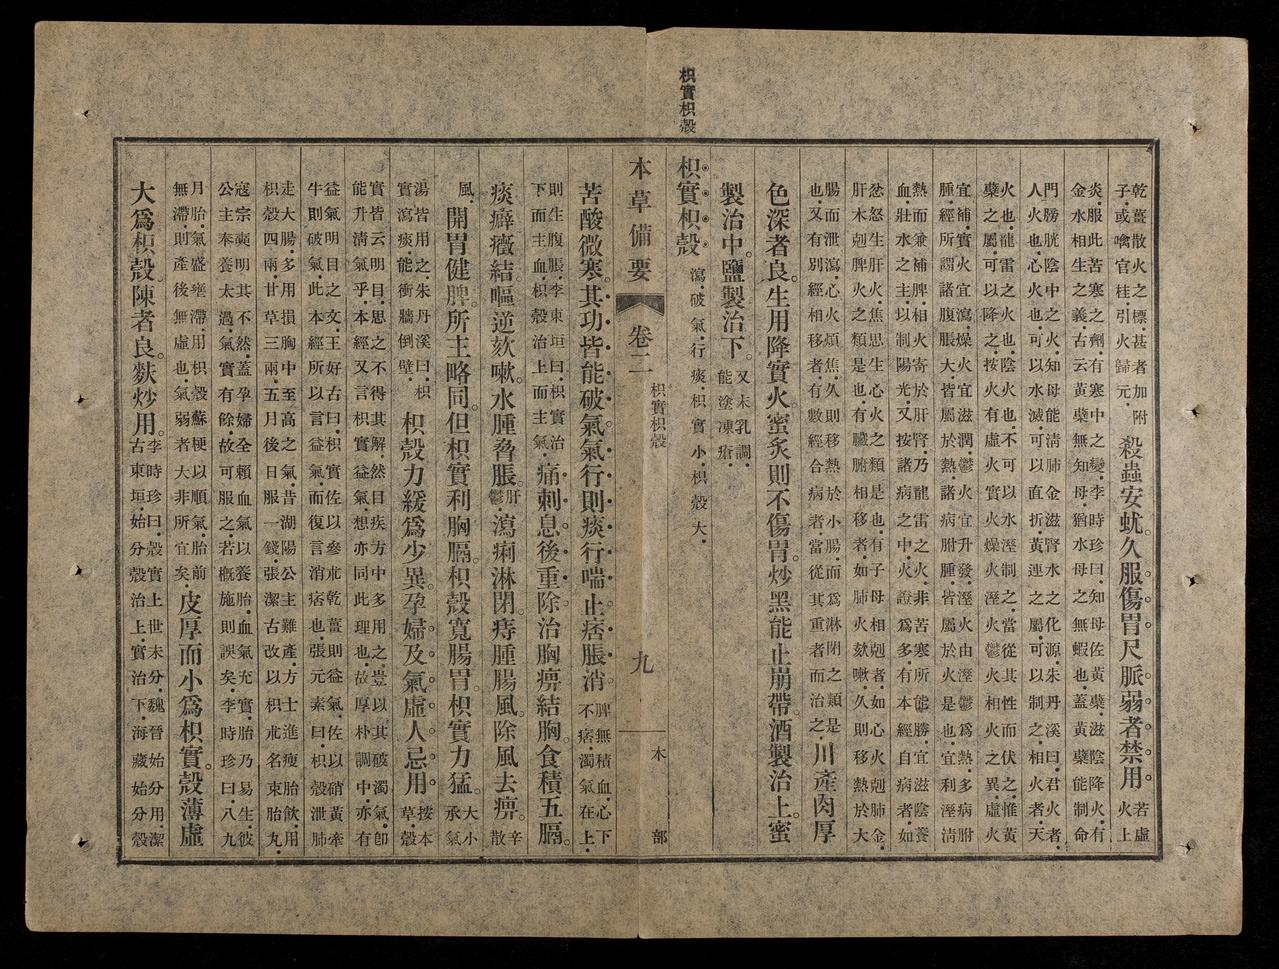 枳實枳殼
乾薑散火之標.甚者加附
子.或噙官桂.引火歸元.
殺蟲安蚘。久服傷胃。尺脈弱者禁用。
若虛
火上
炎.服此苦寒之劑.有寒中之變.李時珍曰.知母佐黃蘗.滋陰降火.有
金水相生之義.古云黃蘗無知母.猶水母之無蝦也.蓋黃蘗能制命
門膀胱陰中之火.知母能清肺金.滋腎水之化源.朱丹溪曰.君火者.
人火也.心火也.可以水滅.可以直折.黃連之屬.可以制之.相火者.天
火也.龍雷之火也.陰火也.不可以水溼制之.當從其性而伏之.惟黃
蘗之屬.可以降之.按火有虛火實火燥火溼火鬱火相火之異.虛火
宜補.實火宜瀉.燥火宜滋潤.鬱火宜升發.溼火由溼鬱爲熱.多病胕
腫.經所謂諸腹脹大.皆屬於熱.諸病胕腫.皆屬於火是也.宜利溼清
熱而兼補脾.相火寄於肝腎.乃龍雷之火.非苦寒所能勝.宜滋陰養
血.壯水之主.以制陽光.又按諸病之中.火證爲多.有本經自病者.如
忿怒生肝火.焦思生心火之類是也.有子母相剋者.如心火剋肺金.
肝木剋脾火之類是也.有臟腑相移者.如肺火欬嗽.久則移熱於大
腸而泄瀉.心火煩焦.久則移熱於小腸.而爲淋閉之類是
也.又有別經相移者.有數經合病者.當從其重者而治之.
川產肉厚
色深者良。生用降實火。蜜炙則不傷胃。炒黑能止崩帶。酒製治上。蜜
製治中。鹽製治下。
又末乳調.
能塗凍瘡.
枳實枳殼
瀉.破氣.行痰.枳實小.枳殼大.
本草備要
卷二
枳實枳殼
九
木
部
苦酸微寒。其功皆能破氣。氣行則痰行喘止。痞脹消。
脾無積血.心下
不痞.濁氣在上.
則生腹脹.李東垣曰.枳實治
下而主血.枳殼治上而主氣.
痛刺息。後重除。治胸痹結胸。食積五膈。
痰癖癥結。嘔逆欬嗽。水腫脅脹。
肝
鬱.
瀉痢淋閉。痔腫腸風。除風去痹。
辛
散
風.
開胃健脾。所主略同。但枳實利胸膈。枳殼寬腸胃。枳實力猛。
大小
承氣
湯皆用之.朱丹溪曰.枳
實瀉痰.能衝牆倒壁.
枳殼力緩爲少異。孕婦及氣虛人忌用。
按本
草枳
實皆云明目.思之不得其解.然目疾方中多用之.豈以其破濁氣.卽
能升清氣乎.本經又言枳實益氣.想亦同此理也.故厚朴調中.亦有
益氣明目之文.王好古曰.枳實佐以參朮乾薑則益氣.佐以硝黃牽
牛則破氣.此本經所以言益氣.而復言消痞也.張元素曰.枳殼泄肺
走大腸.多用損胸中至高之氣.昔湖陽公主難產.方士進瘦胎飲.用
枳殼四兩.甘草二兩.五月後日服一錢.張潔古改以枳朮名束胎丸.
寇宗奭明其不然.蓋孕婦全賴血氣以養胎.血氣充實.胎乃易生.彼
公主奉養太過.氣實有餘.故可服之.若概施則誤矣.李時珍曰.八九
月胎.氣盛壅滯.用枳殼蘇梗以順氣.胎前
無滯.則產後無虛也.氣弱者大非所宜矣.
皮厚而小爲枳實。殼薄虛
大爲枳殼。陳者良。麩炒用。
李時珍曰.殼實上世未分.魏晉始分用.潔
古東垣.始分殼治上.實治下.海藏始分殼